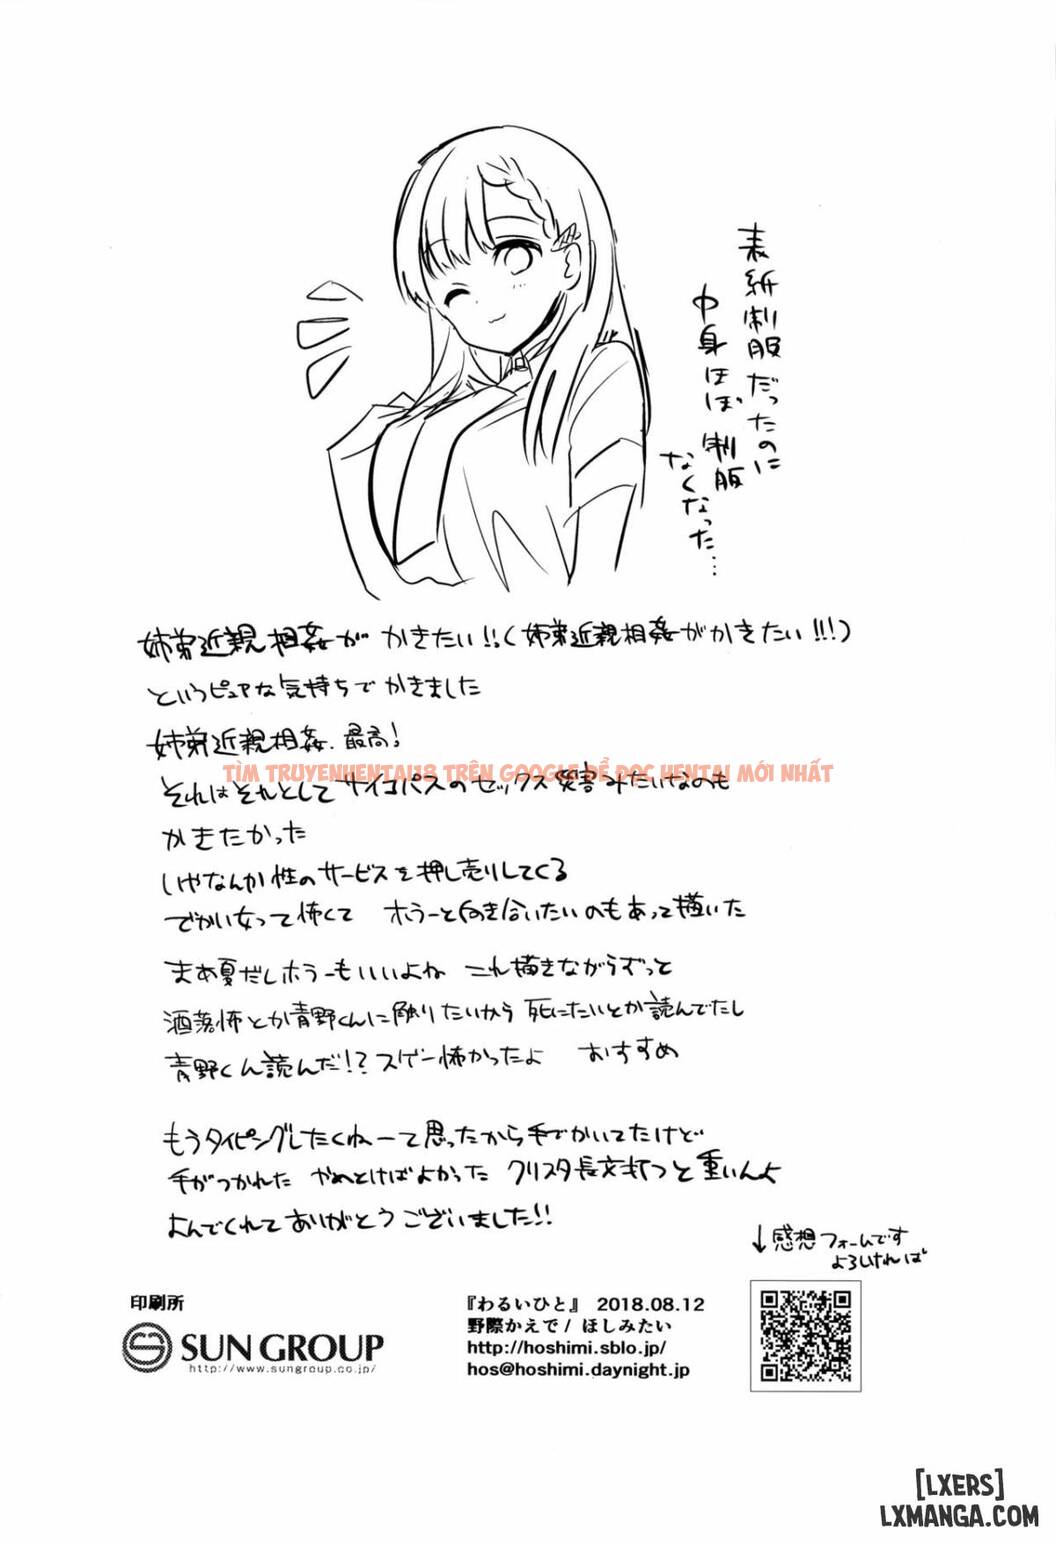 表紙制服だったのに
中身ほぼ制服
なくなった…
姉弟近親相姦が かきたい!!(姉弟近親相姦がかきたい!!!)
というピュアな気持ちでかきました
姉弟近親相姦、最高!
TÌM TRUYENHENTAI18 TRÊN GOOGLE ĐỂ ĐỌC HENTAI MỚI NHẤT
それはそれとしてサイコパスのセックス災害みたいなのも
かきたかった
いやなんか性のサービスを押し売りしてくる
でかい女って怖くて ホラーと向き合いたいのもあって描いた
まあ夏だしホラーもいいよね これ描きながらずっと
洒落怖とか青野くんに触りたいから死にたいとか読んでたし
青野くん読んだ!?スゲー怖かったよ おすすめ
もうタイピングしたくねーて思ったから手でかいてたけど
手がつかれた やめとけばよかった クリスタ長文打つと重いんよ
よんでくれてありがとうございました!!
↓感想フォームです
よろしければ
印刷所
SUN GROUP
http://www.sungroup.co.jp/
『わるいひと』 2018.08.12
野際かえで/ほしみたい
http://hoshimi.sblo.jp/
hos@hoshimi.daynight.jp
[LXERS]
LXMANGA.COM